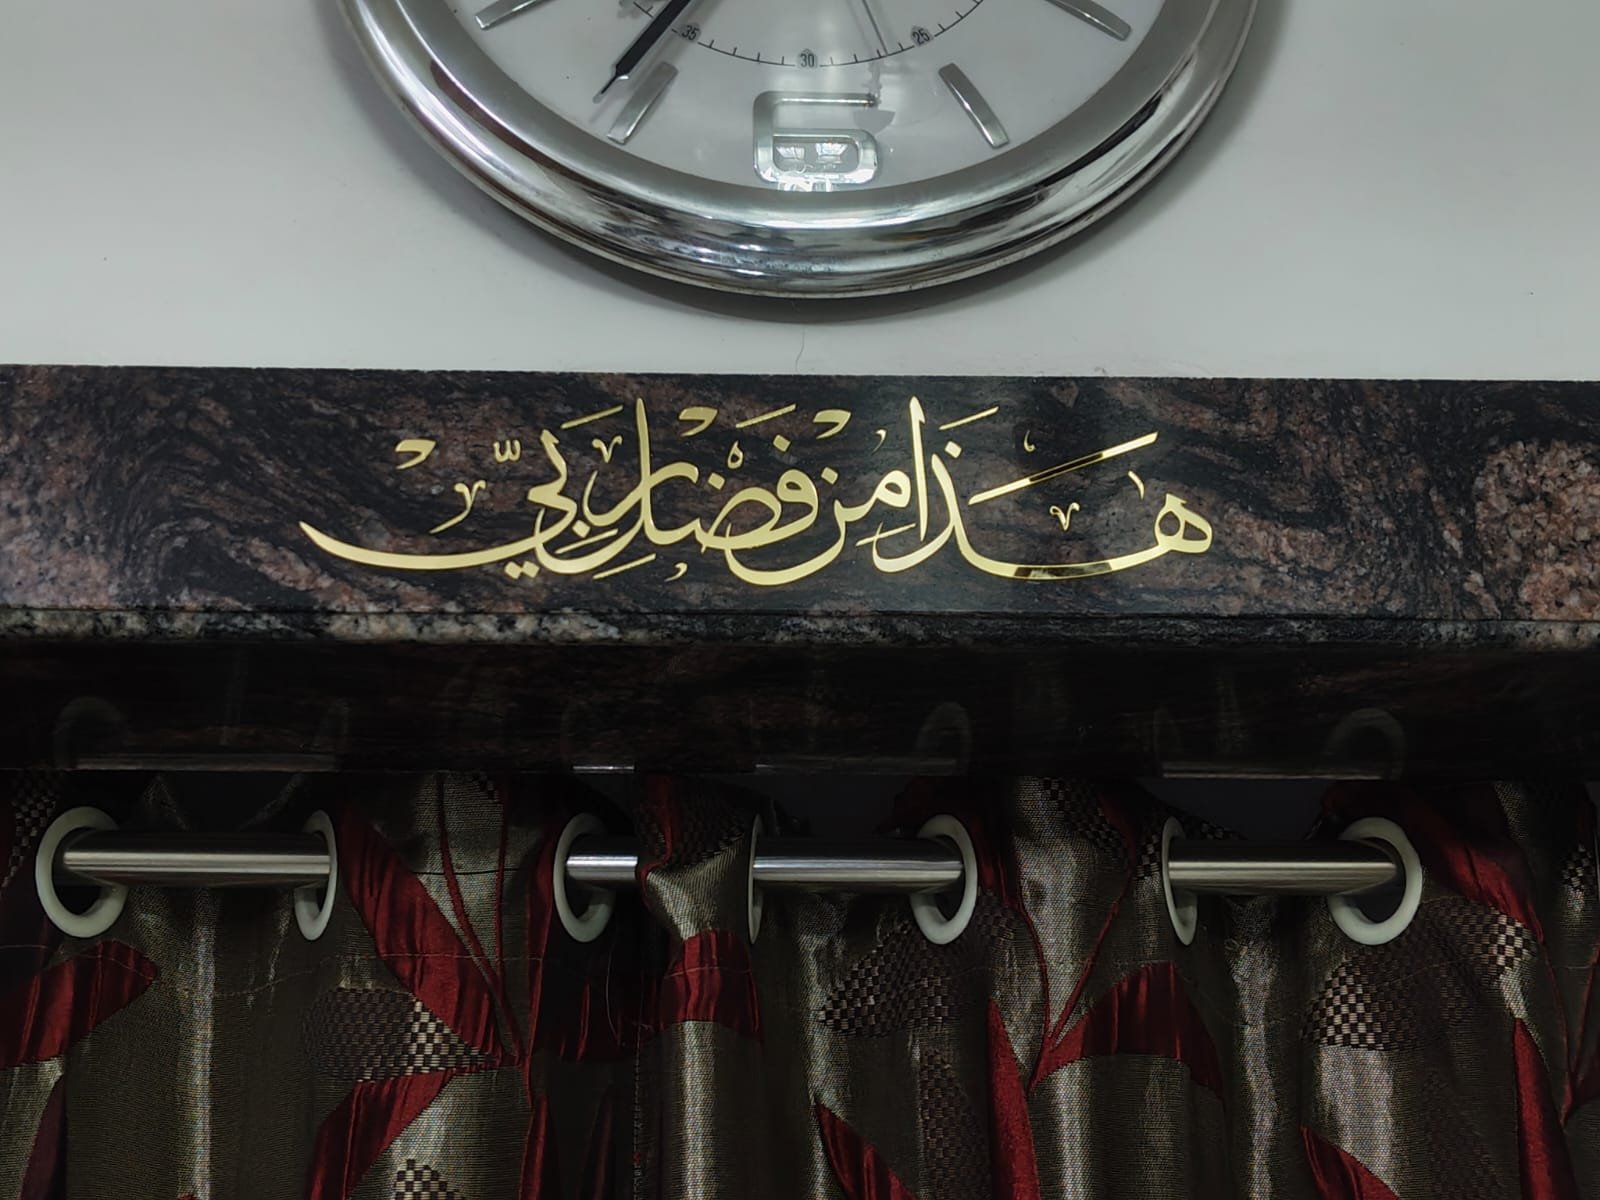 35 30 25
6
هَذَا مِنْ فَضْلِ رَبِّي